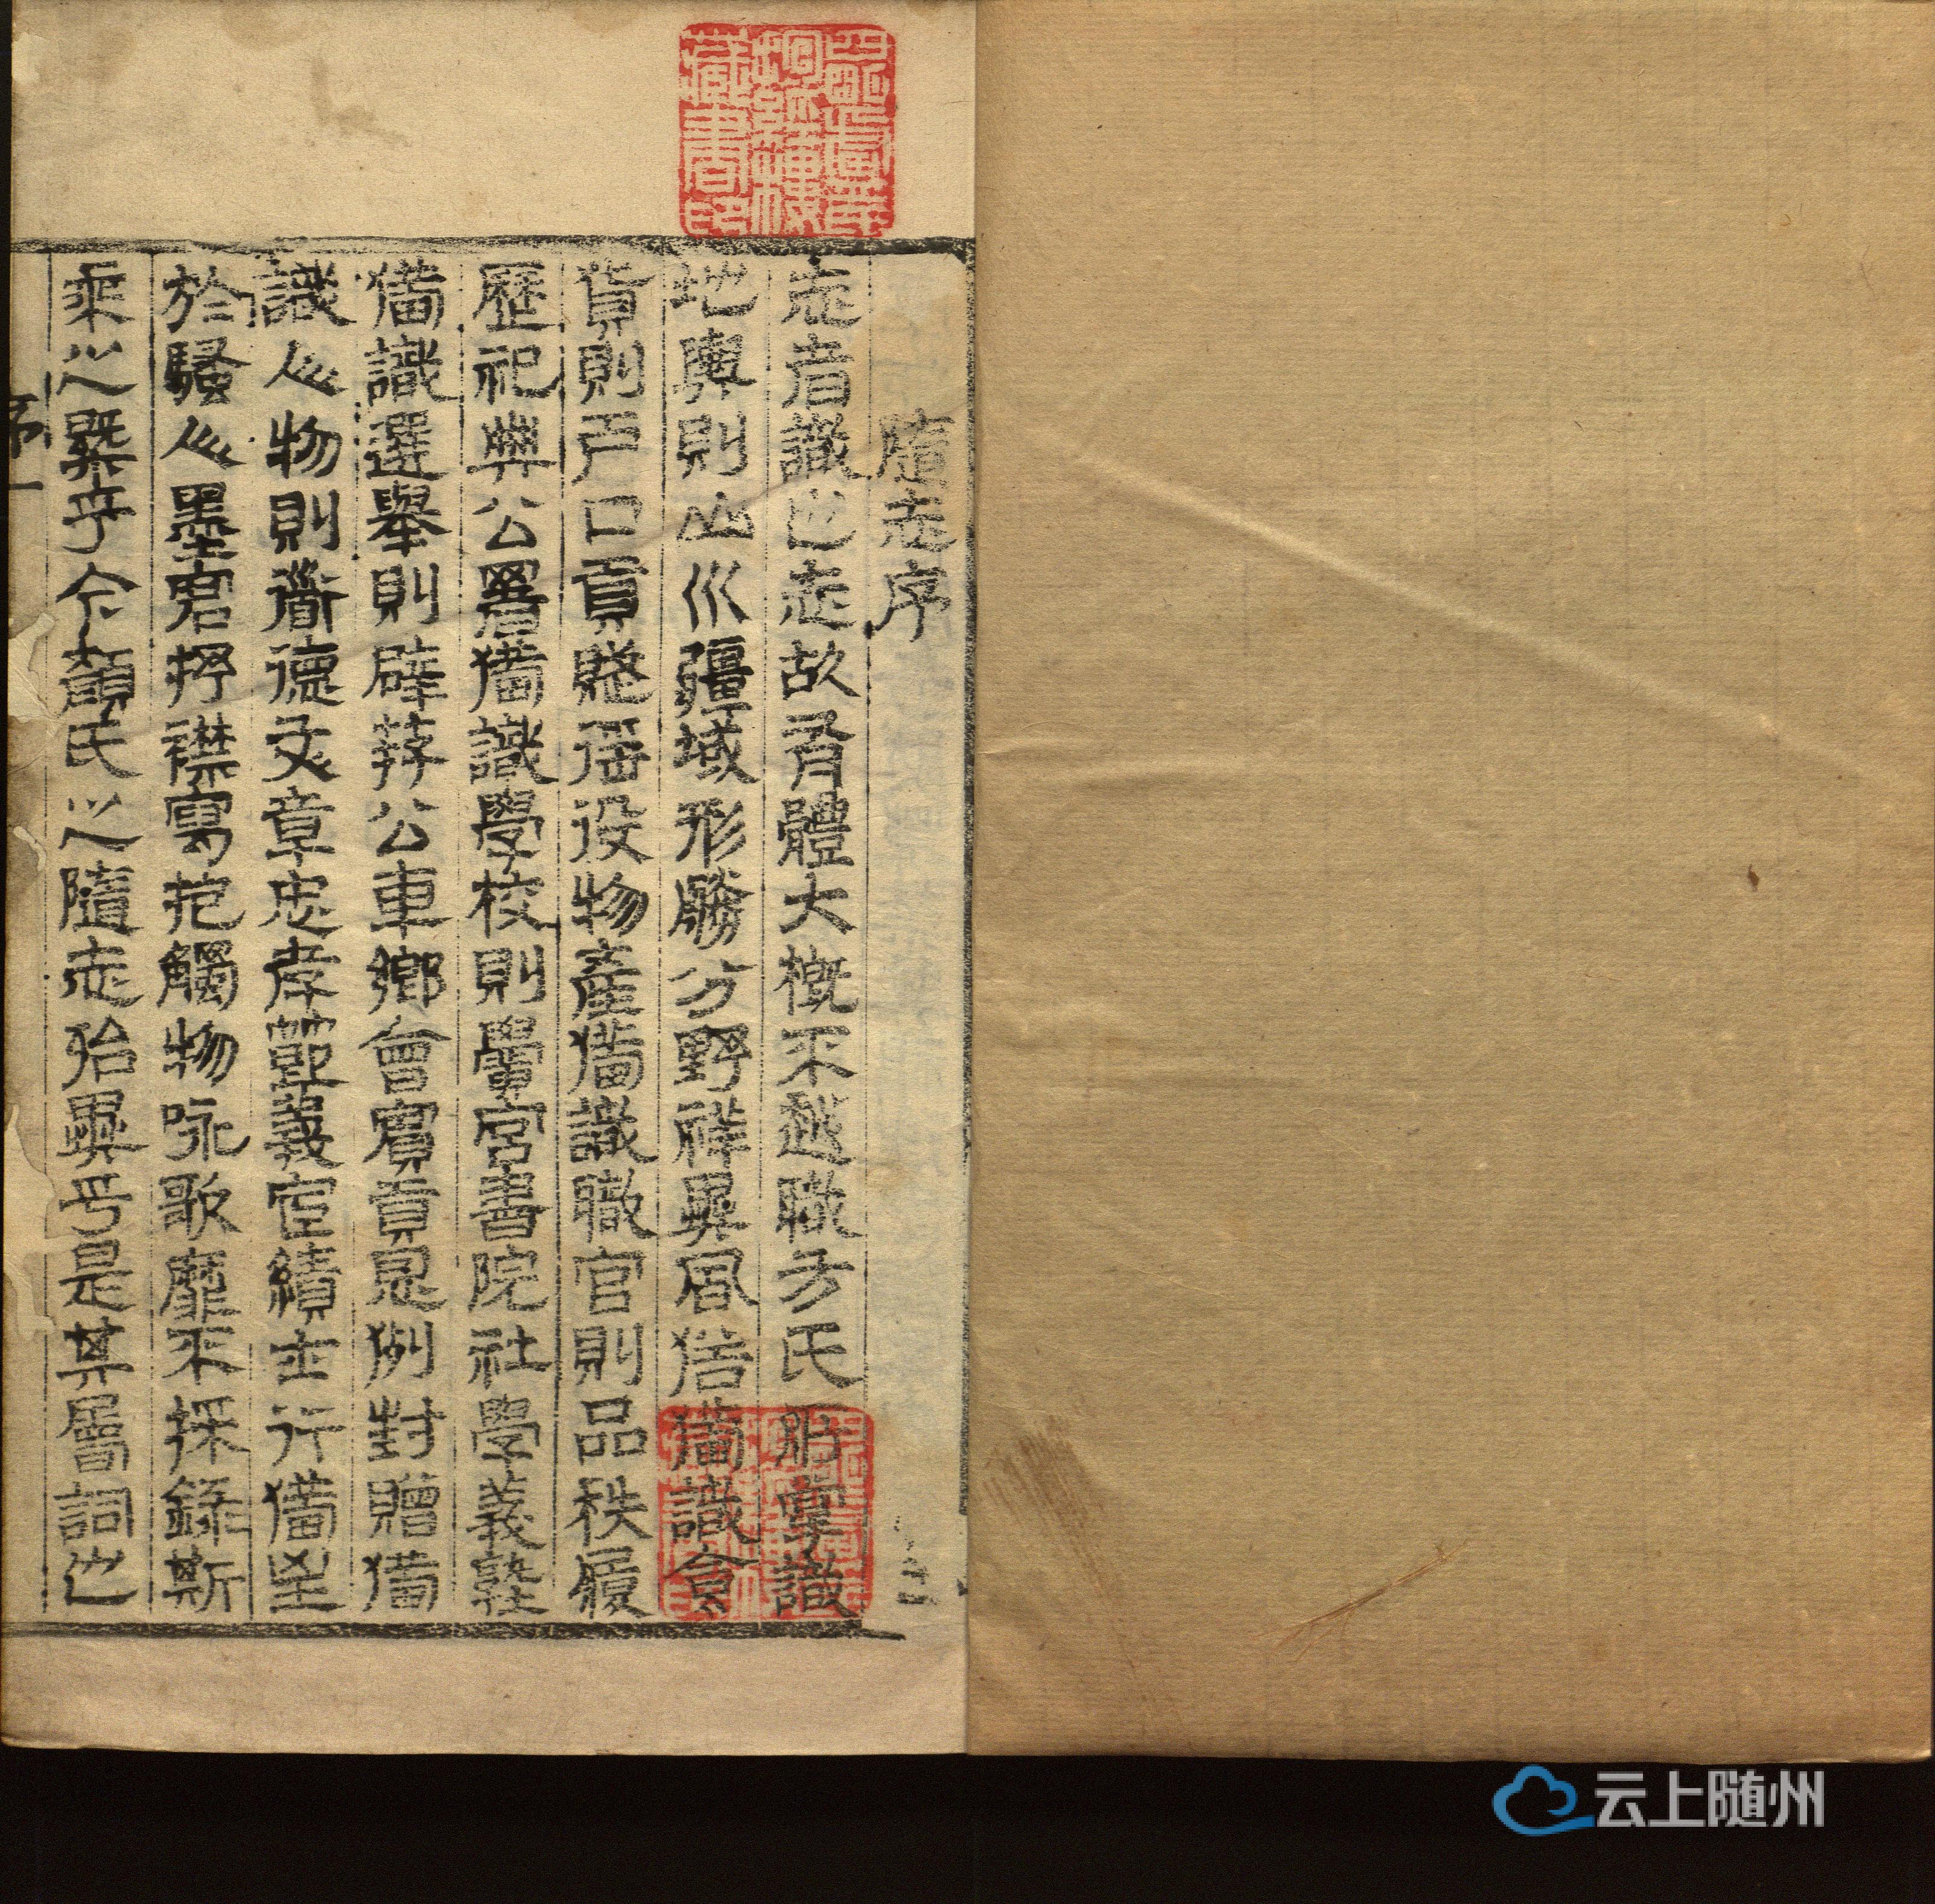 四明盧氏
抱經樓
藏書印
隨志序
志者識也志故有體大概不越職方氏所掌識
地輿則山川疆域形勝分野祥異風俗備識食
貨則戶口貢賦徭役物產備識職官則品秩履
歷祀典公署備識學校則黌宮書院社學義塾
備識選舉則辟薦公車鄉會賓貢恩例封贈備
識人物則道德文章忠孝節義宦績士行備至
於騷人墨客抒襟寫抱觸物咏歌靡不採錄斯
乘之槩乎今顏氏之隨志殆異乎是其屬詞也
序 一
云上随州